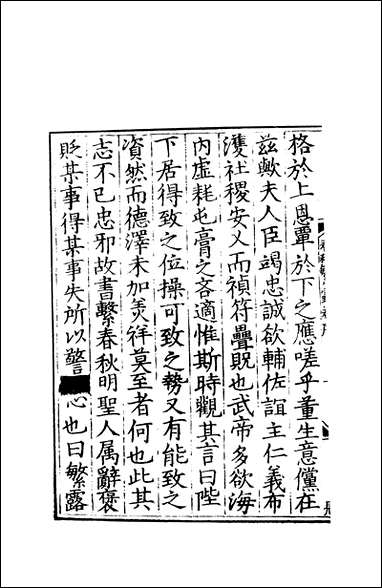 格於上恩覃於下之應嗟乎董生意儻在
茲歟夫人臣竭忠誠欲輔佐誼主仁義布
濩社稷安乂而禎符疊貺也武帝多欲海
內虛耗屯膏之吝適惟斯時觀其言曰陛
下居得致之位操可致之勢又有能致之
資然而德澤未加羙祥莫至者何也此其
志不已忠邪故書繫春秋明聖人属辭褒
貶某事得某事失所以警心也曰繁露